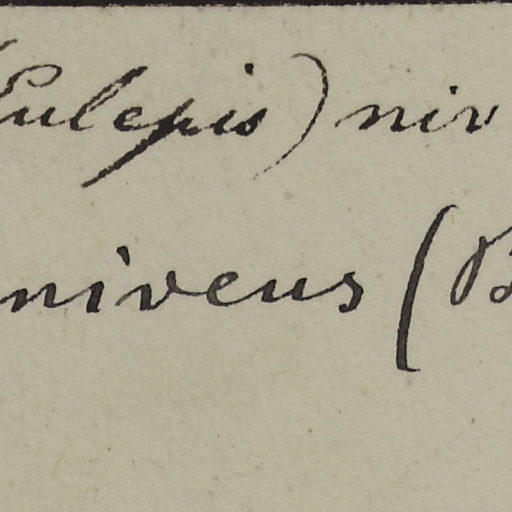 (Eulepis) niv
niveus (B